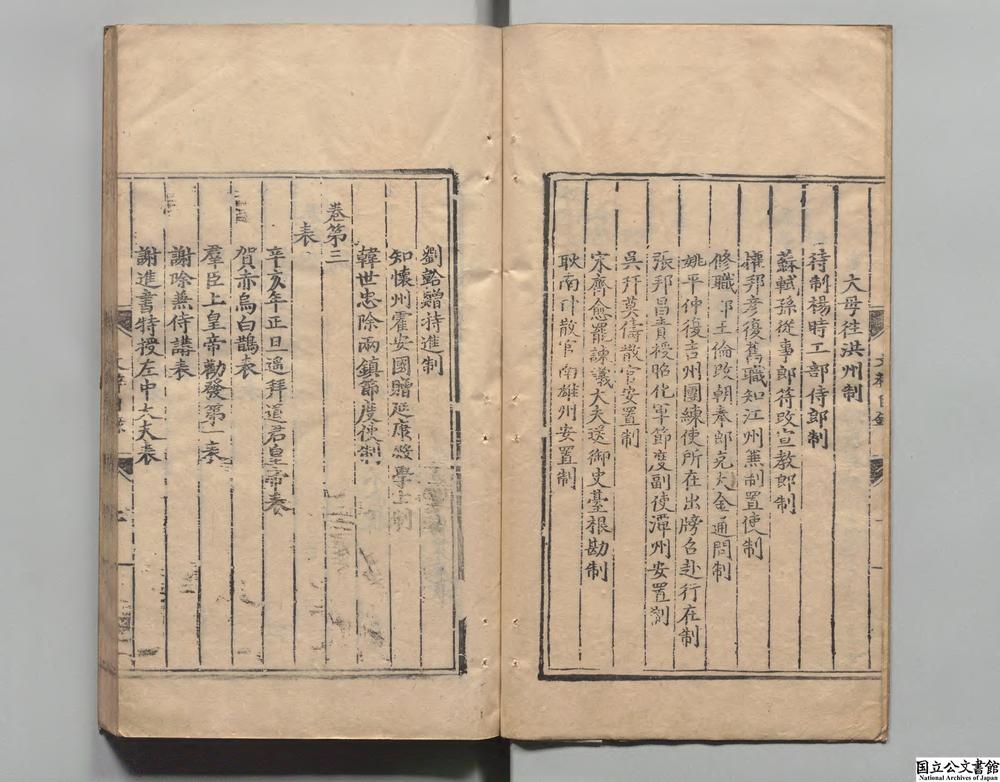 大母往洪州制
待制楊時工部侍郎制
蘇軾孫從事郎符改宣教郎制
權邦彥復舊職知江州兼制置使制
修職郎王倫改朝奉郎充大金通問制
姚平仲復吉州團練使所在出牓召赴行在制
張邦昌責授昭化軍節度副使潭州安置制
吳幵莫儔散官安置制
宋齊愈罷諫議大夫送御史臺根勘制
耿南仲散官南雄州安置制
劉韐贈特進制
知懷州霍安國贈延康殿學士制
韓世忠除兩鎮節度使制
卷第三
表
辛亥年正旦遥拜道君皇帝表
賀赤烏白鵲表
羣臣上皇帝勸發第一表
謝除兼侍講表
謝進書特授左中大夫表
国立公文書館
National Archives of Japan